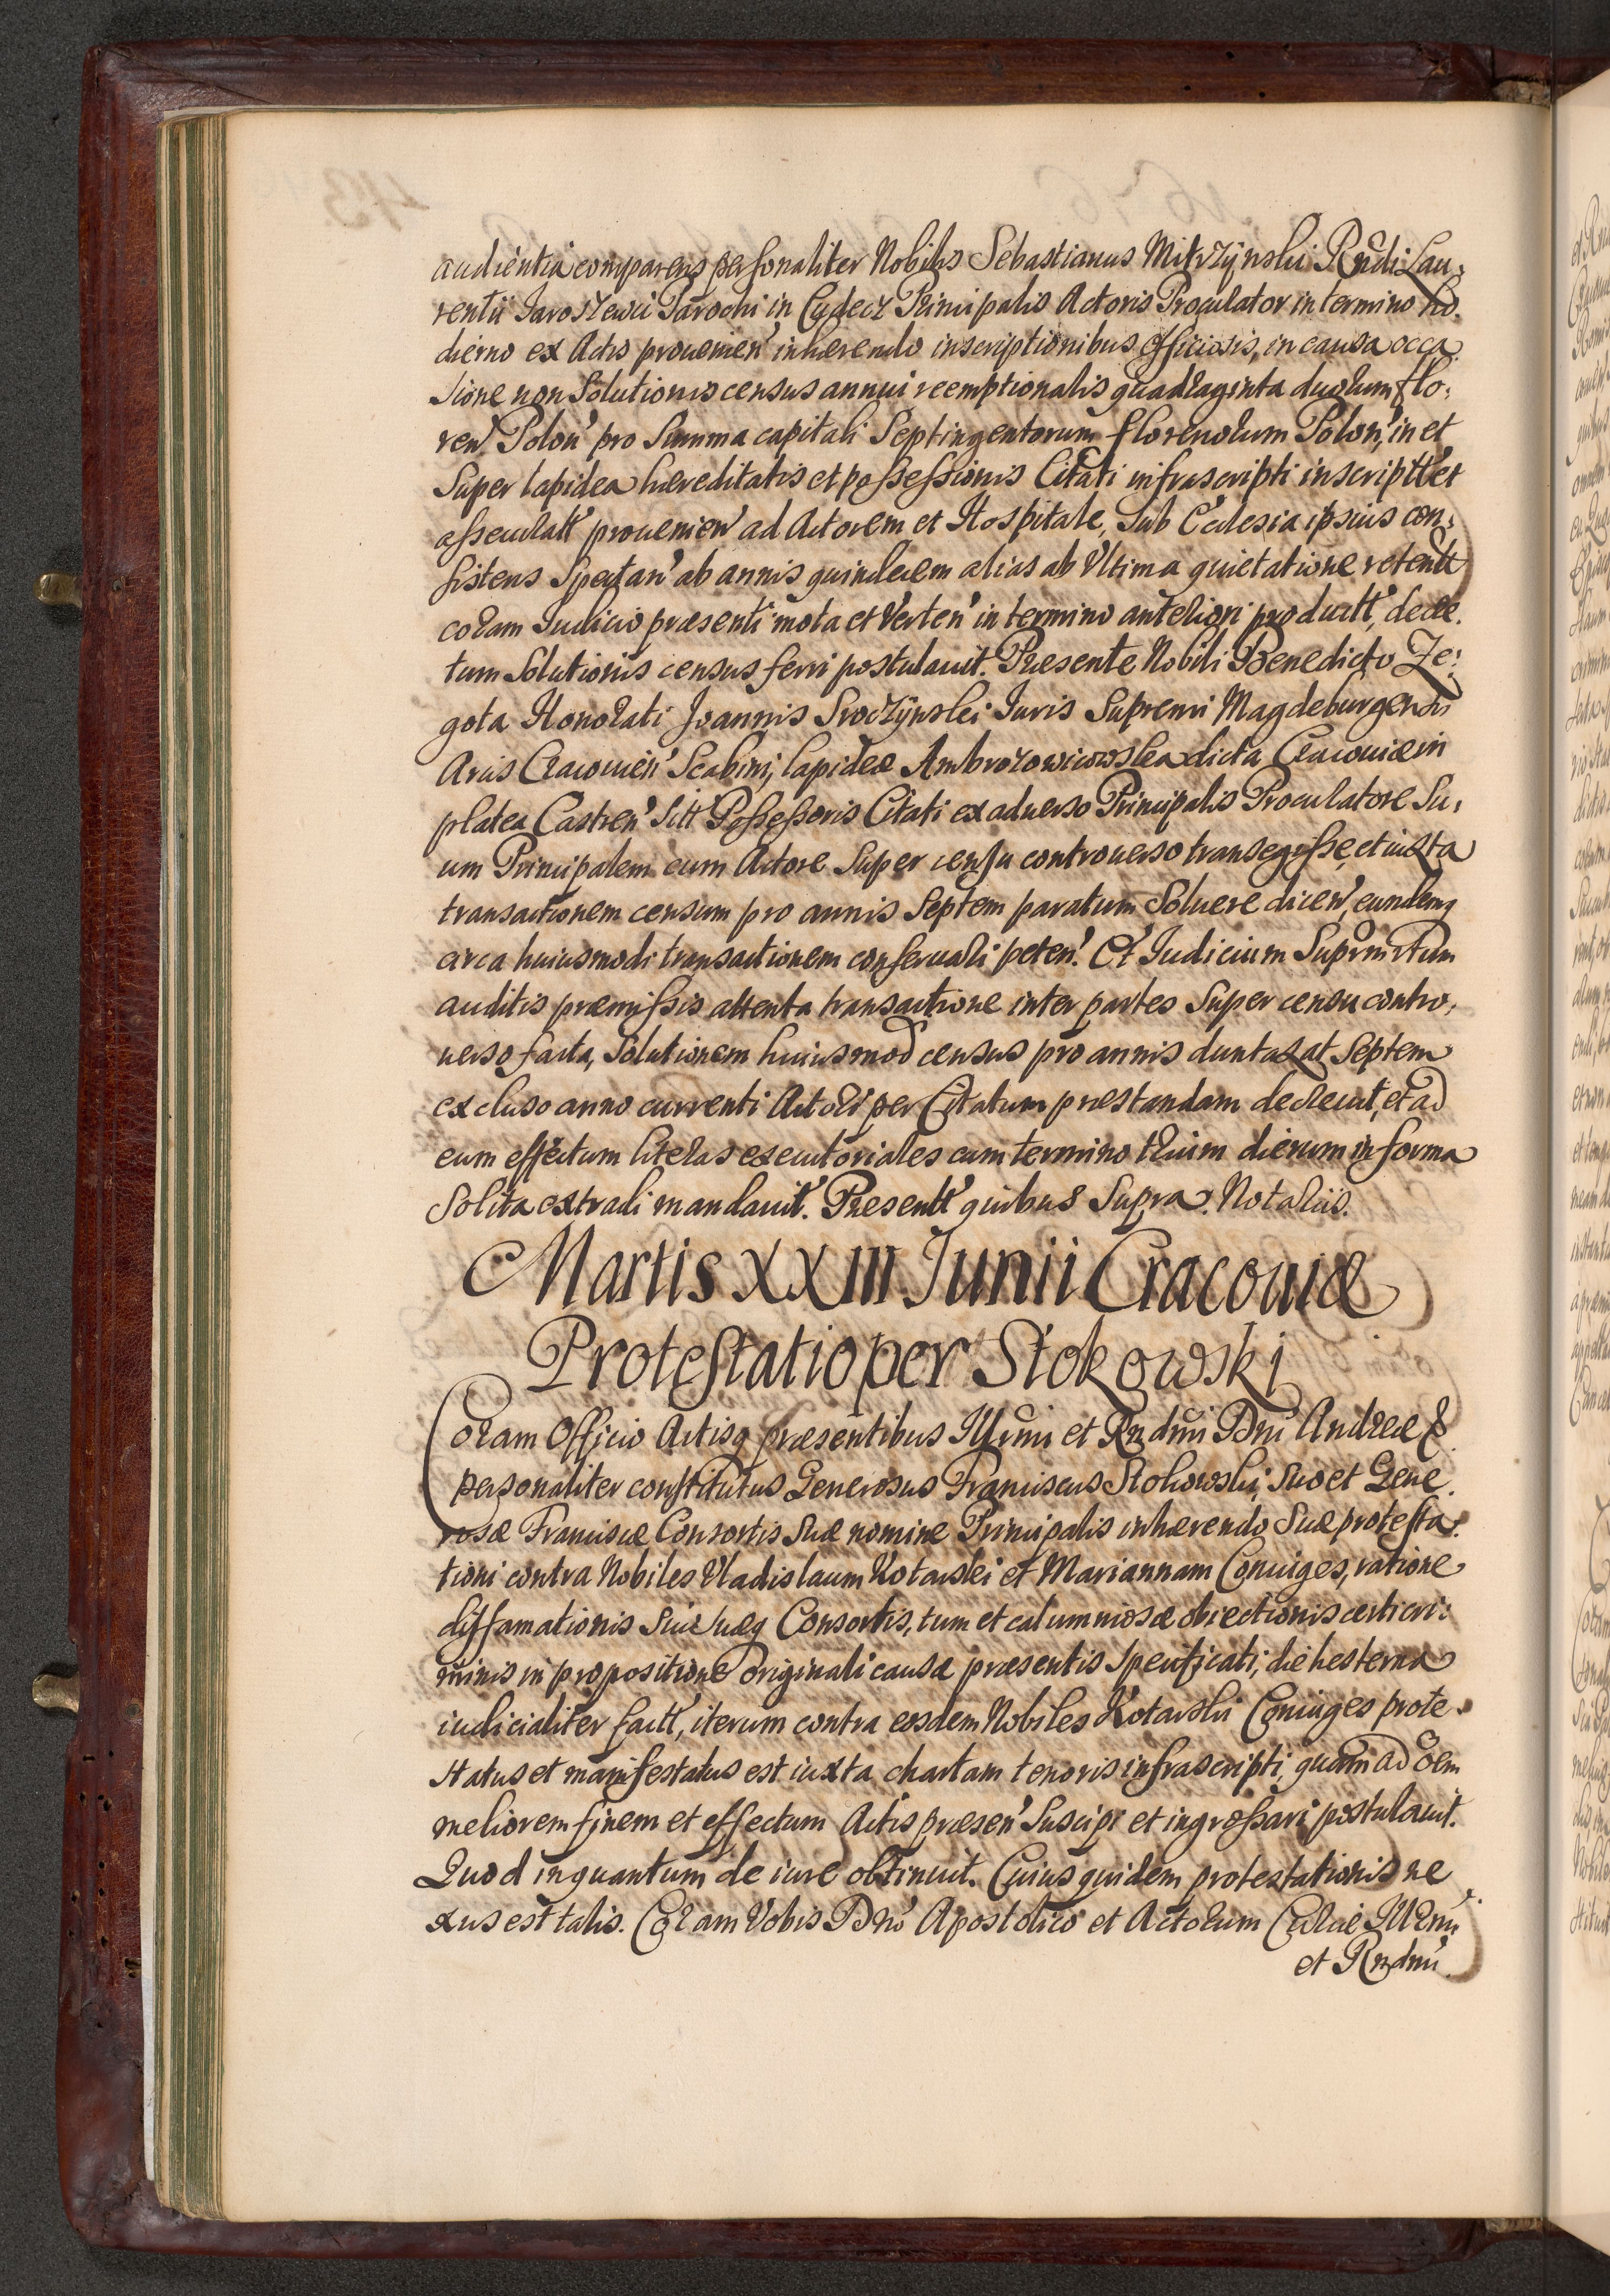 audientia comparens personaliter Nobilis Sebastianus Mitrzÿnski Rndi Lau,
rentii Jaroszewic Parochi in Czudecz Principalis Actoris Procurator in termino ho.
dierno ex Actis prouenien' inhærendo inscriptionibus officiosis, in causa occa
sione non Solutionis census annui reemptionalis quadraginta duorum flo,
ren' Polon' pro Summa capitali Septingentorum florenorum Polon', in et
Super lapidea hæreditatis et possessionis Citati infrascripti inscriptt' et
assecuratt' prouenien' ad Actorem et Hospitale, Sub Ecclesia ipsius con,
sistens Spectan' ab annis quindecem alias ab Ultima quietatione retentt'
coram Iudicio præsenti mota et Verten' in termino anteriori productt', decre.
tum Solutionis census ferri postulauit. Præsente Nobili Benedicto Ze:
gota Honorati Joannis Sroczÿnski Iuris Supremi Magdeburgensis
Arcis Cracouien' Scabini, lapideæ Ambrozowicowska dicta Cracouiæ in
platea Castren' Sitt' Possessoris Citati ex aduerso Principalis Procuratore Su,
um Principalem cum Actore Super censu controuerso transegisse, et iuxta
transactionem censum pro annis Septem paratum Soluere dicen', eundemq
circa huiusmodi transactionem conseruari peten'. Et Iudicium Suprmttum
auditis præmissis attenta transactione inter partes Super censu contro,
uerso facta, Solutionem huiusmod census pro annis duntaxat Septem
excluso anno currenti Actori per Citatum præstandam decreuit, et ad
eum effectum literas executoriales cum termino trium dierum in forma
Solita extradi mandauit. Præsentt' quibus Supra. Notariis.
Martis XXIII Junii Cracouiæ
Protestatio per Stokowski
Coram Officio Actisq præsentibus Illrmi et Rndmi Dni Andreæ &
personaliter constitutus Generosus Franciscus Stokowski, Suo et Gene.
rosæ Franciscæ Consortis Suæ nomine Principalis inhærendo Suæ protesta.
tioni contra Nobiles Vladislaum Kotarski et Mariannam Coniuges, ratione
diffamationis Sui Suæq Consortis, tum et calumniosæ obiectionis certi cri:
minis in propositione originali causæ præsentis Specificati, die hesterna
iudicialiter factt', iterum contra eosdem Nobiles Kotarski Coniuges prote.
status et manifestatus est iuxta chartam tenoris infrascripti, quam ad oem
meliorem finem et effectum Actis præsen' Suscipi et ingrossari postulauit.
Quod inquantum de iure obtinuit. Cuius quidem protestationis ne
xus est talis. Coram Vobis Dno Apostolico et Actorum Curiæ Illrmi
et Rndmi